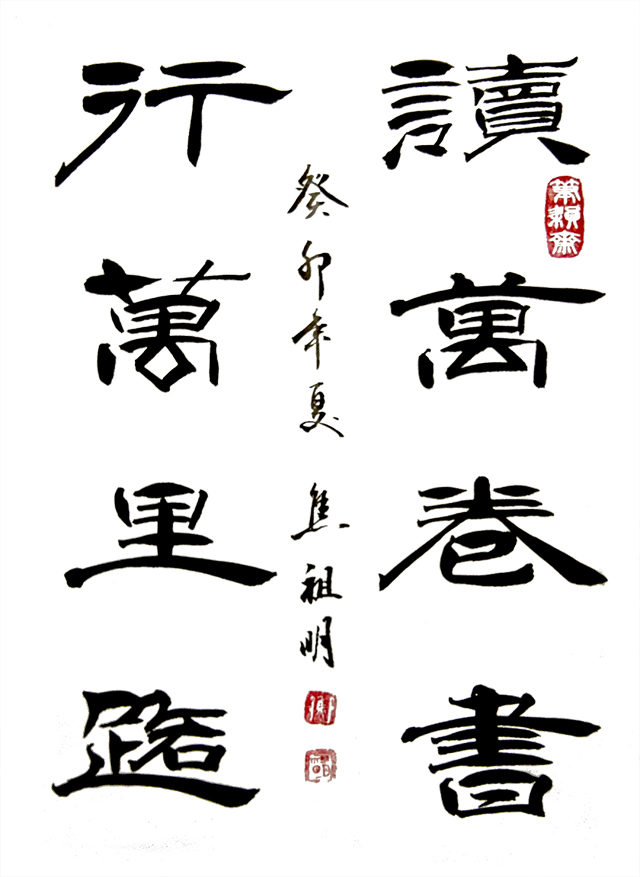 讀萬卷書
行萬里路
癸卯年夏 焦祖明